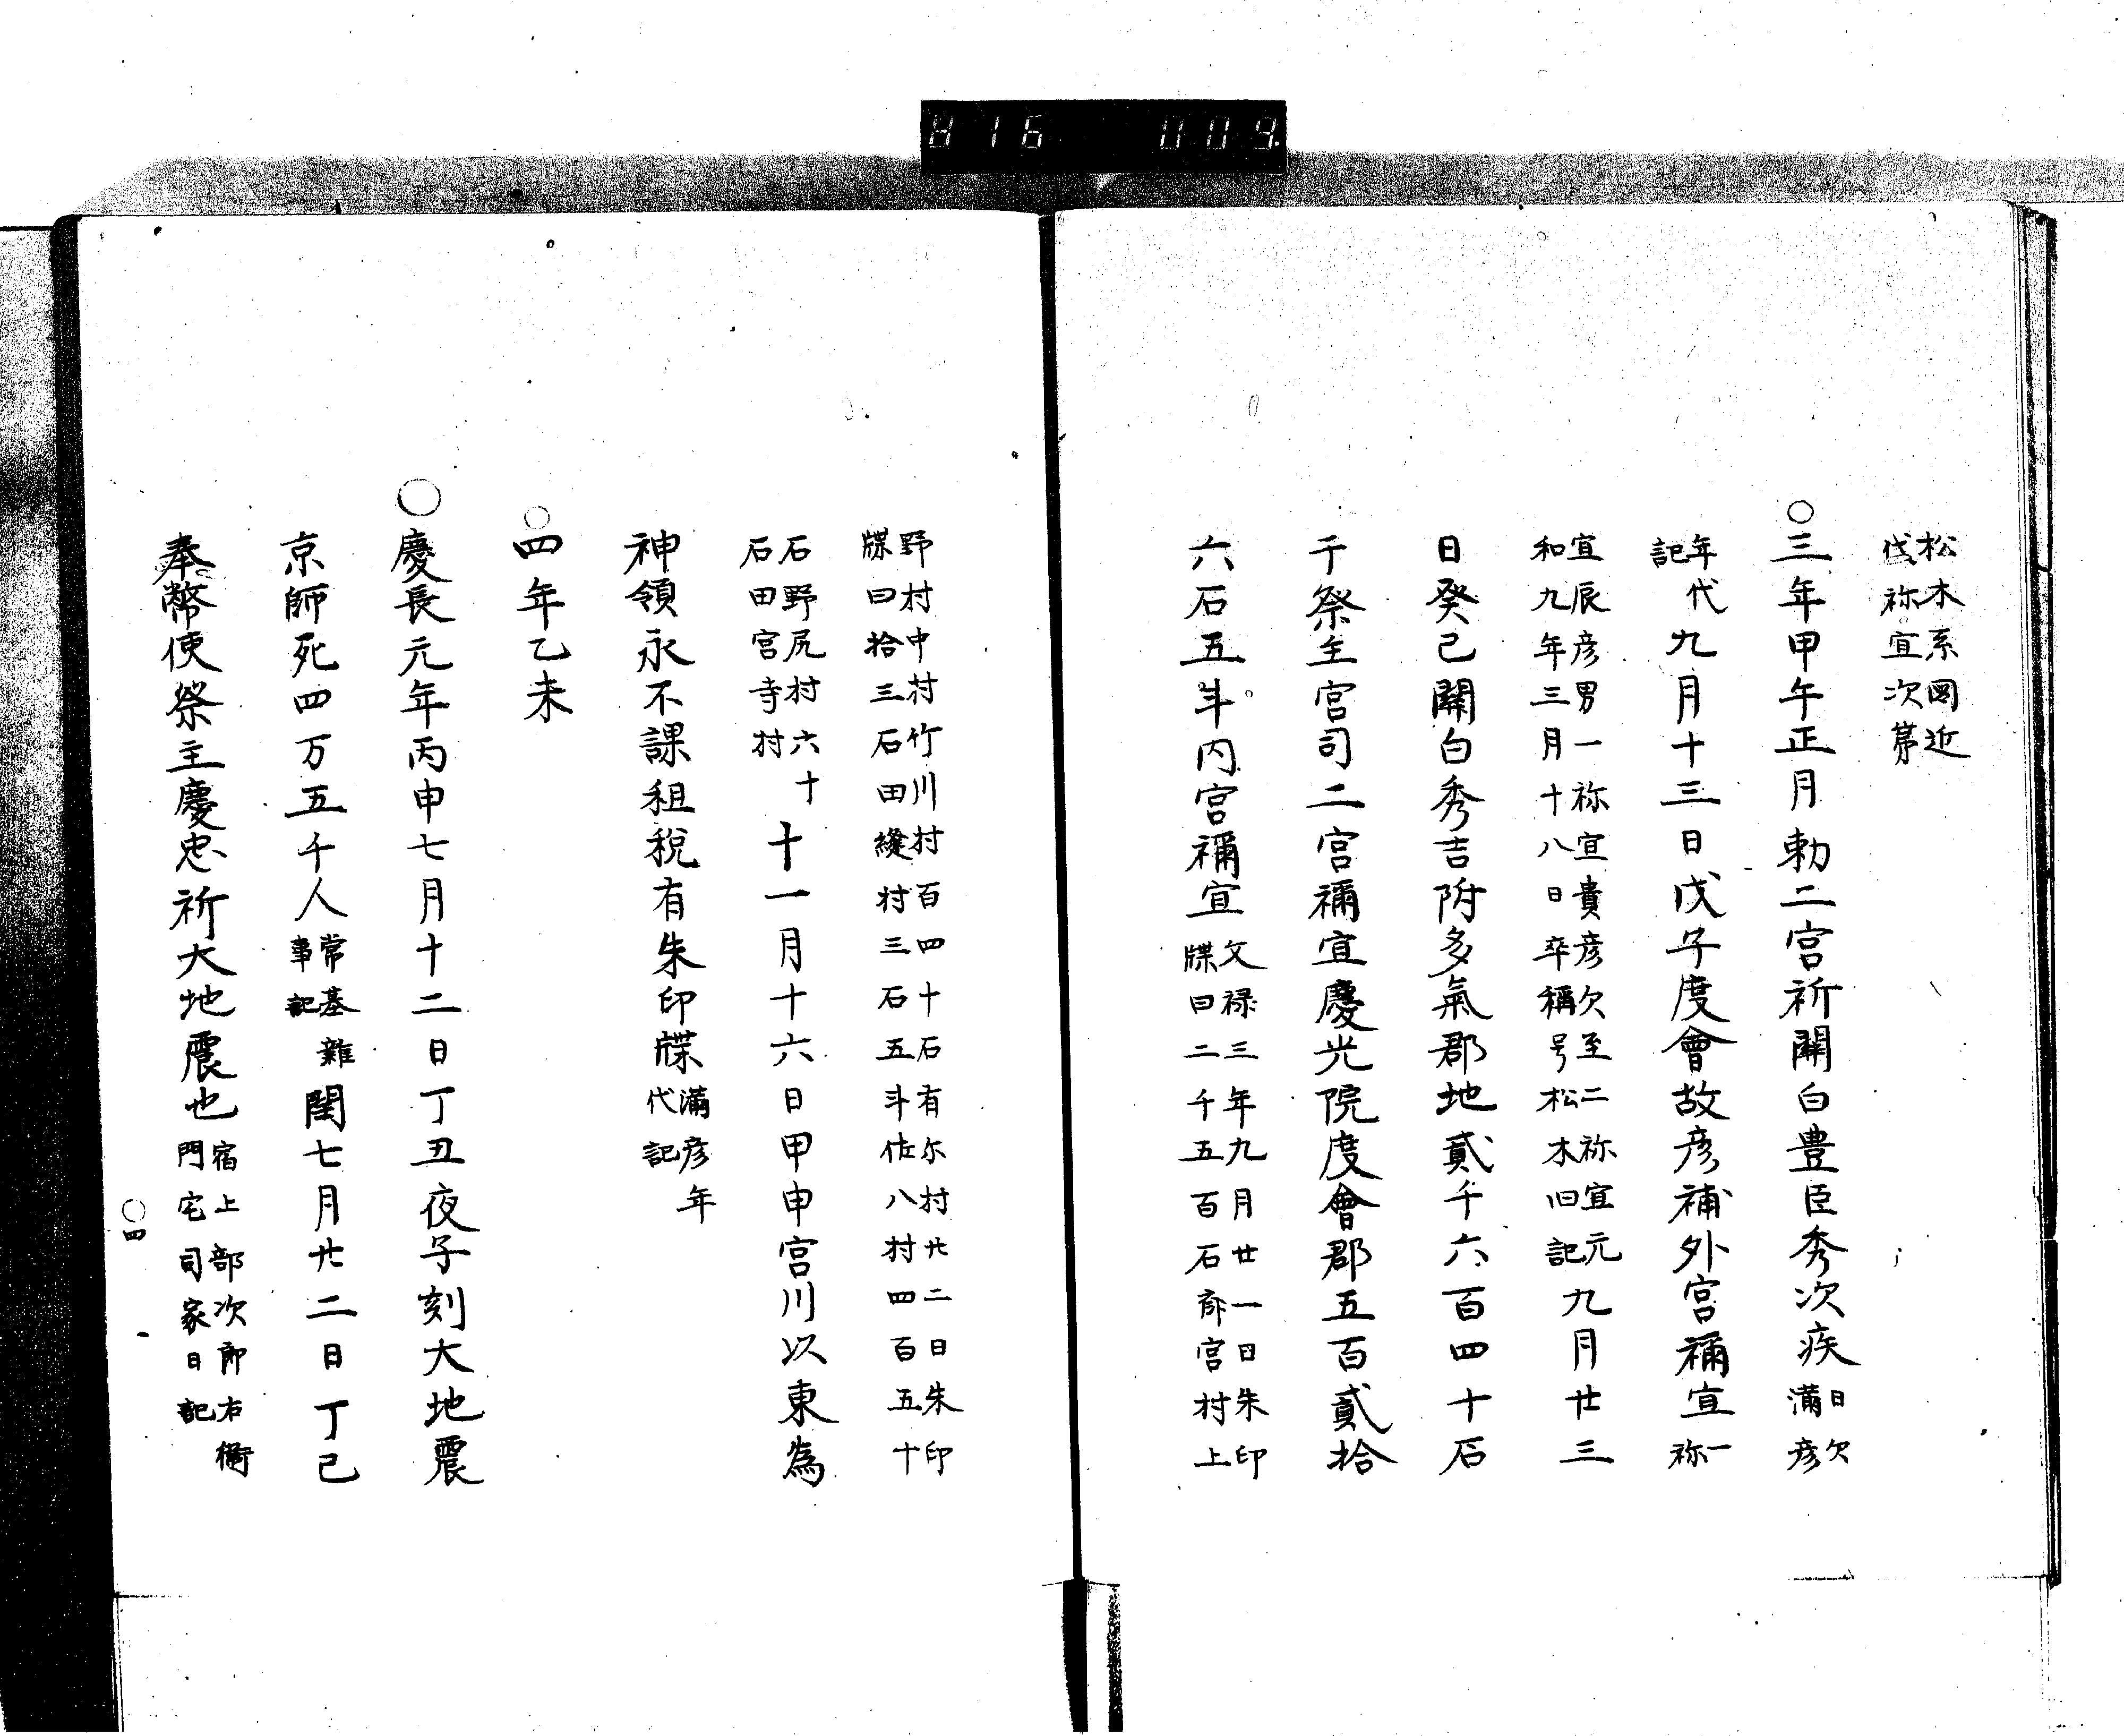 816 009.
松木系図近
代祢宜次第
○三年甲午正月勅二宮祈關白豊臣秀次疾日次
満彦
年代
記
九月十三日戊子度會故彦補外宮禰宜一
祢
宜辰彦男一祢宜貴彦欠至二祢宜元
和九年三月十八日卒稱号松木旧記
九月廿三
日癸巳關白秀吉附多氣郡地貳千六百四十石
于祭主宮司二宮禰宜慶光院度會郡五百貳拾
六石五斗内宮禰宜
文禄三年九月廿一日朱印
牒曰二千五百石斎宮村上
野村中村竹川村百四十石有尓村廿二日朱印
牒曰拾三石田縫村三石五斗佐八村四百五十
石野尻村六十
石田宮寺村
十一月十六日甲申宮川以東為
神領永不課租税有朱印牒
満彦年
代記
○四年乙未
○慶長元年丙申七月十二日丁丑夜子刻大地震
京師死四万五千人
常基雑
事記
閏七月廿二日丁巳
奉幣使祭主慶忠祈大地震也
宿上部次郎右衛
門宅司家日記
○四